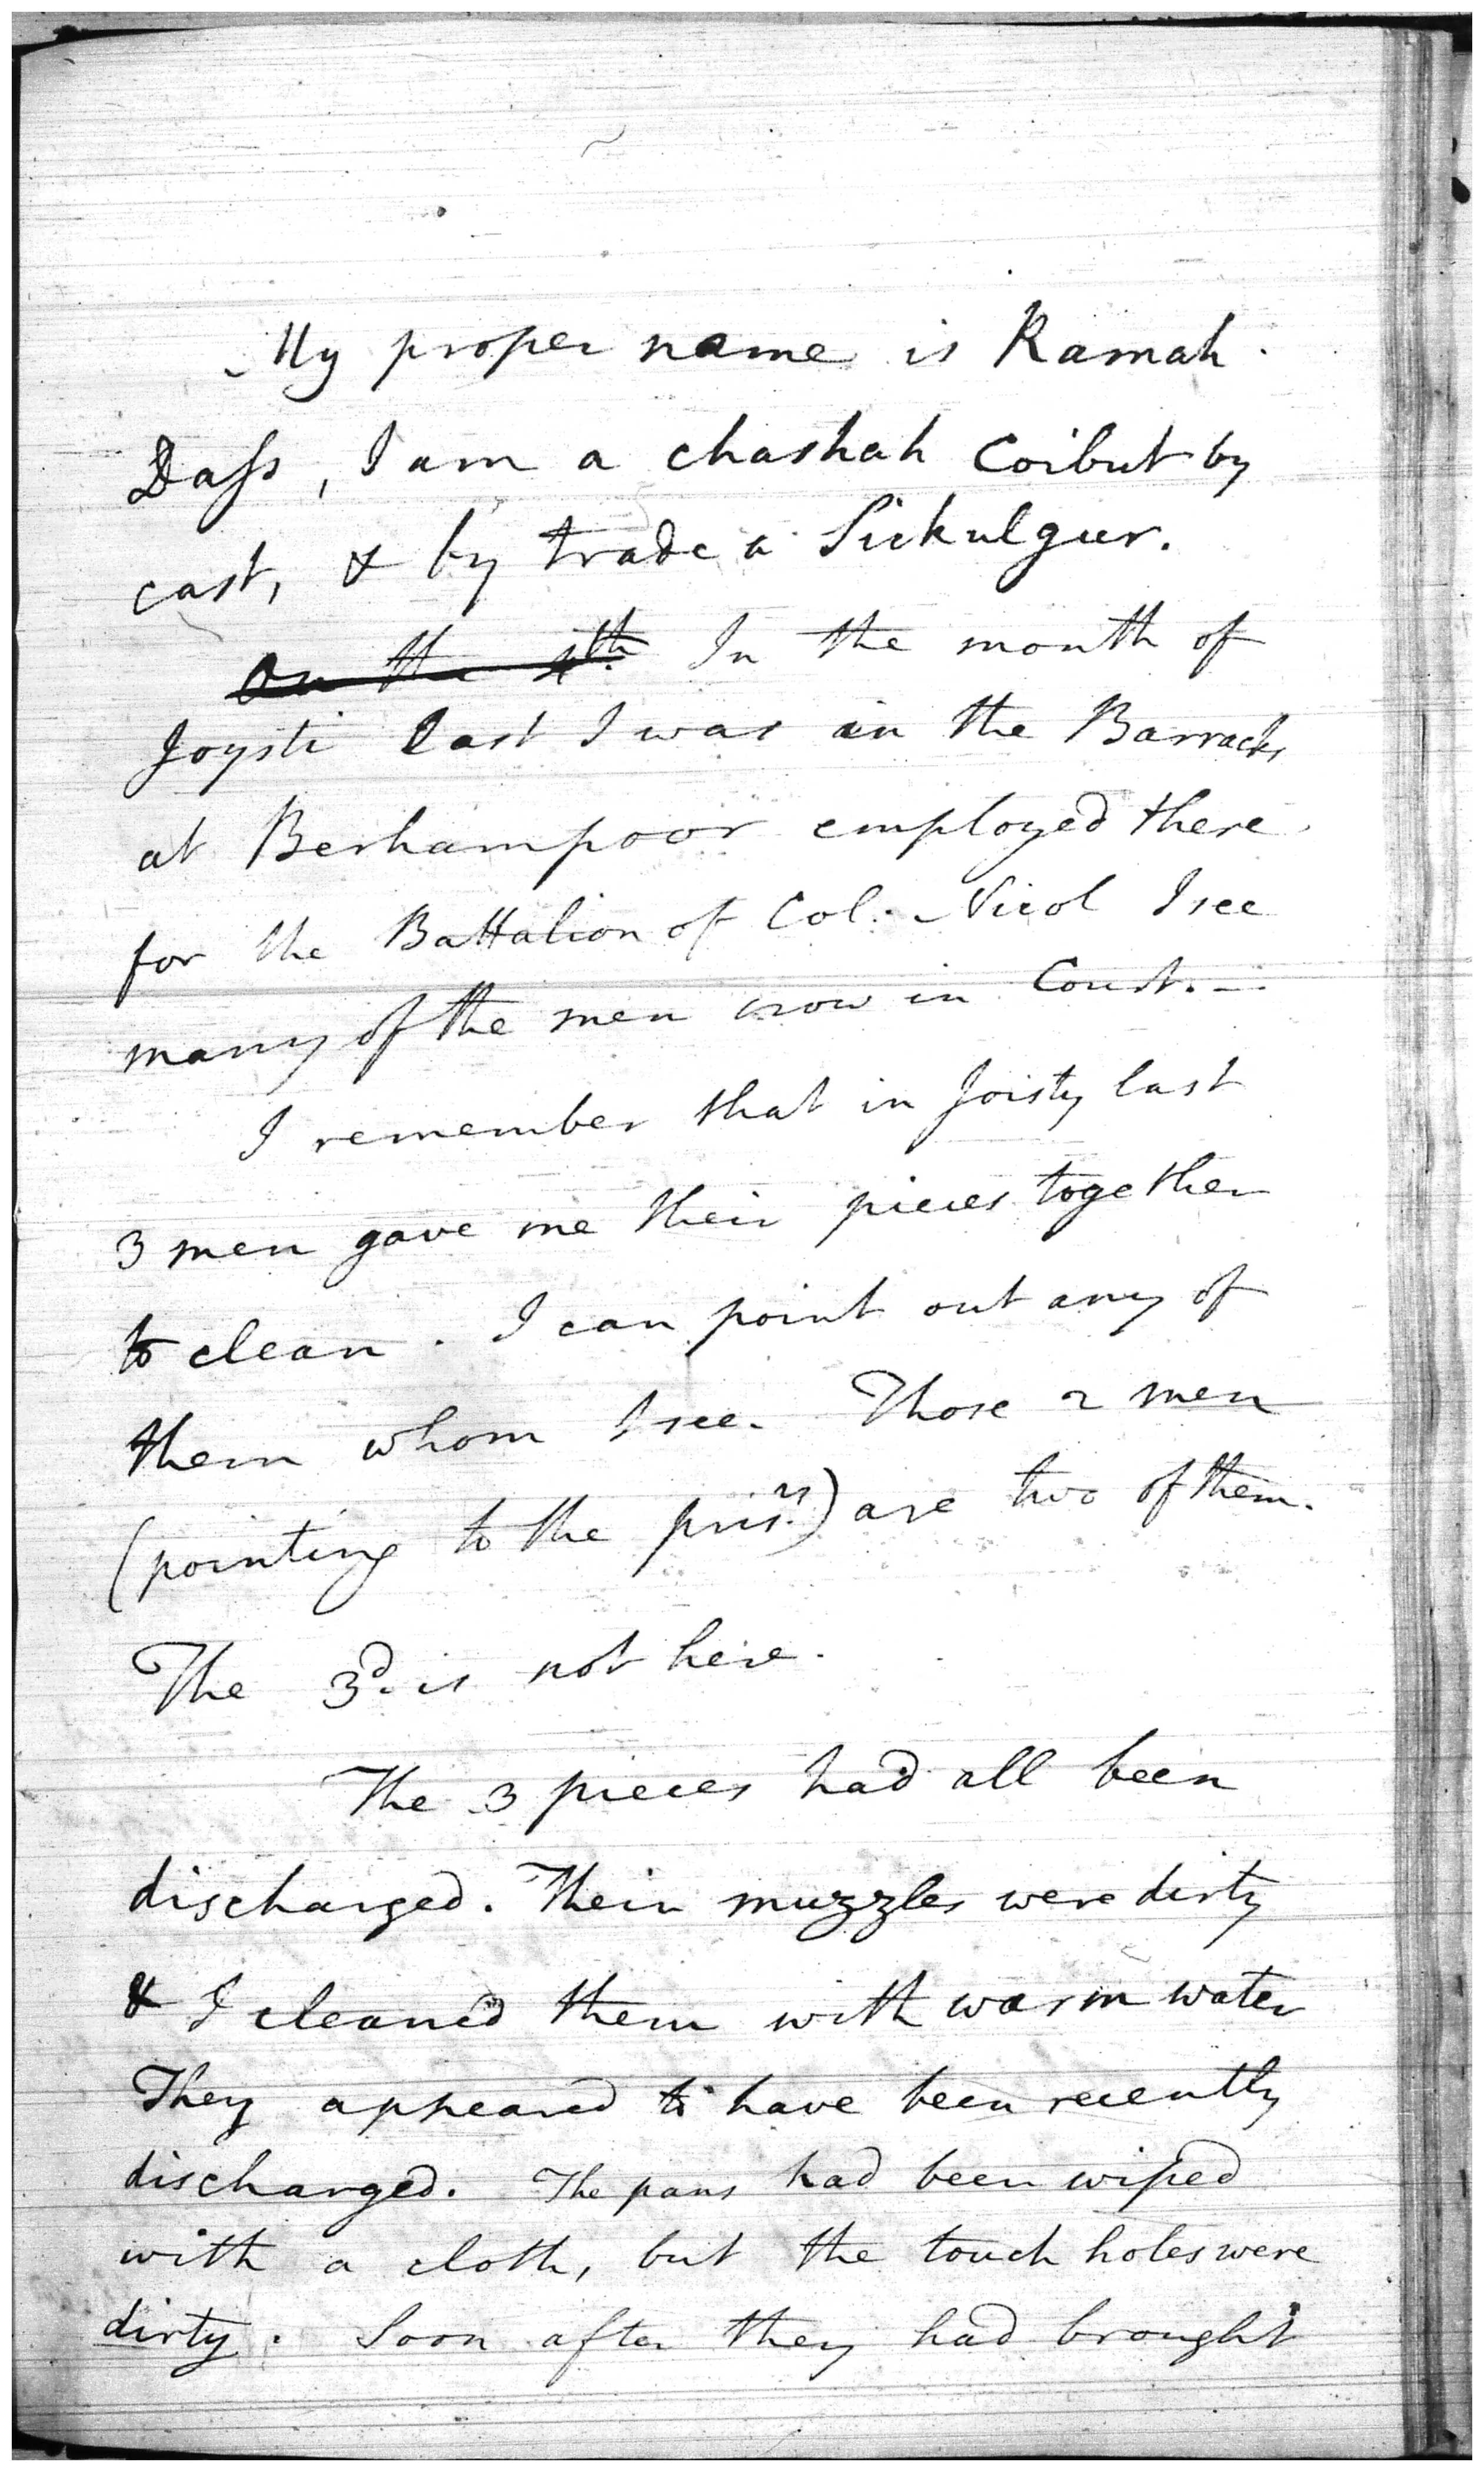 My proper name is Ramah
Dass, I am a chashah Coibut by
cast, & by trade a Sickulgur.
On the 4th. In the month of
Joysti last I was in the Barracks
at Berhampoor employed there
for the Battalion of Col. Nicol I see
many of the men now in Court. —
I remember that in Joisty last
3 men gave me their pieces together
to clean. I can point out any of
them whom I see. Those 2 men
(pointing to the pris.rs) are two of them.
The 3d. is not here.
The 3 pieces had all been
discharged. Their muzzles were dirty
& I cleaned them with warm water
They appeared to have been recently
discharged. The pans had been wiped
with a cloth, but the touch holes were
dirty. Soon after they had brought